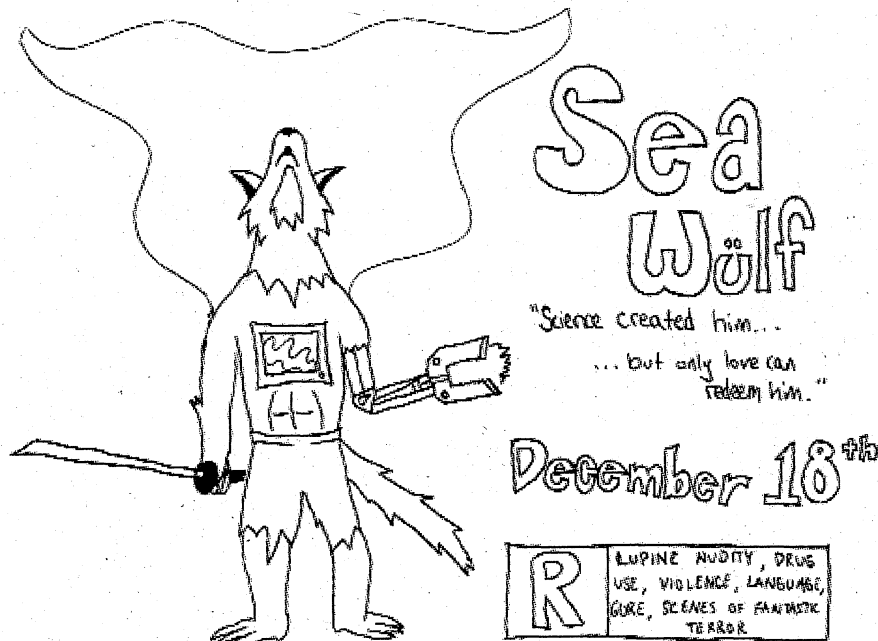 Sea
Wülf
"Science created him...
...but only love can
redeem him."
December 18th
R
LUPINE NUDITY, DRUG
USE, VIOLENCE, LANGUAGE,
GORE, SCENES OF FANTASTIC
TERROR